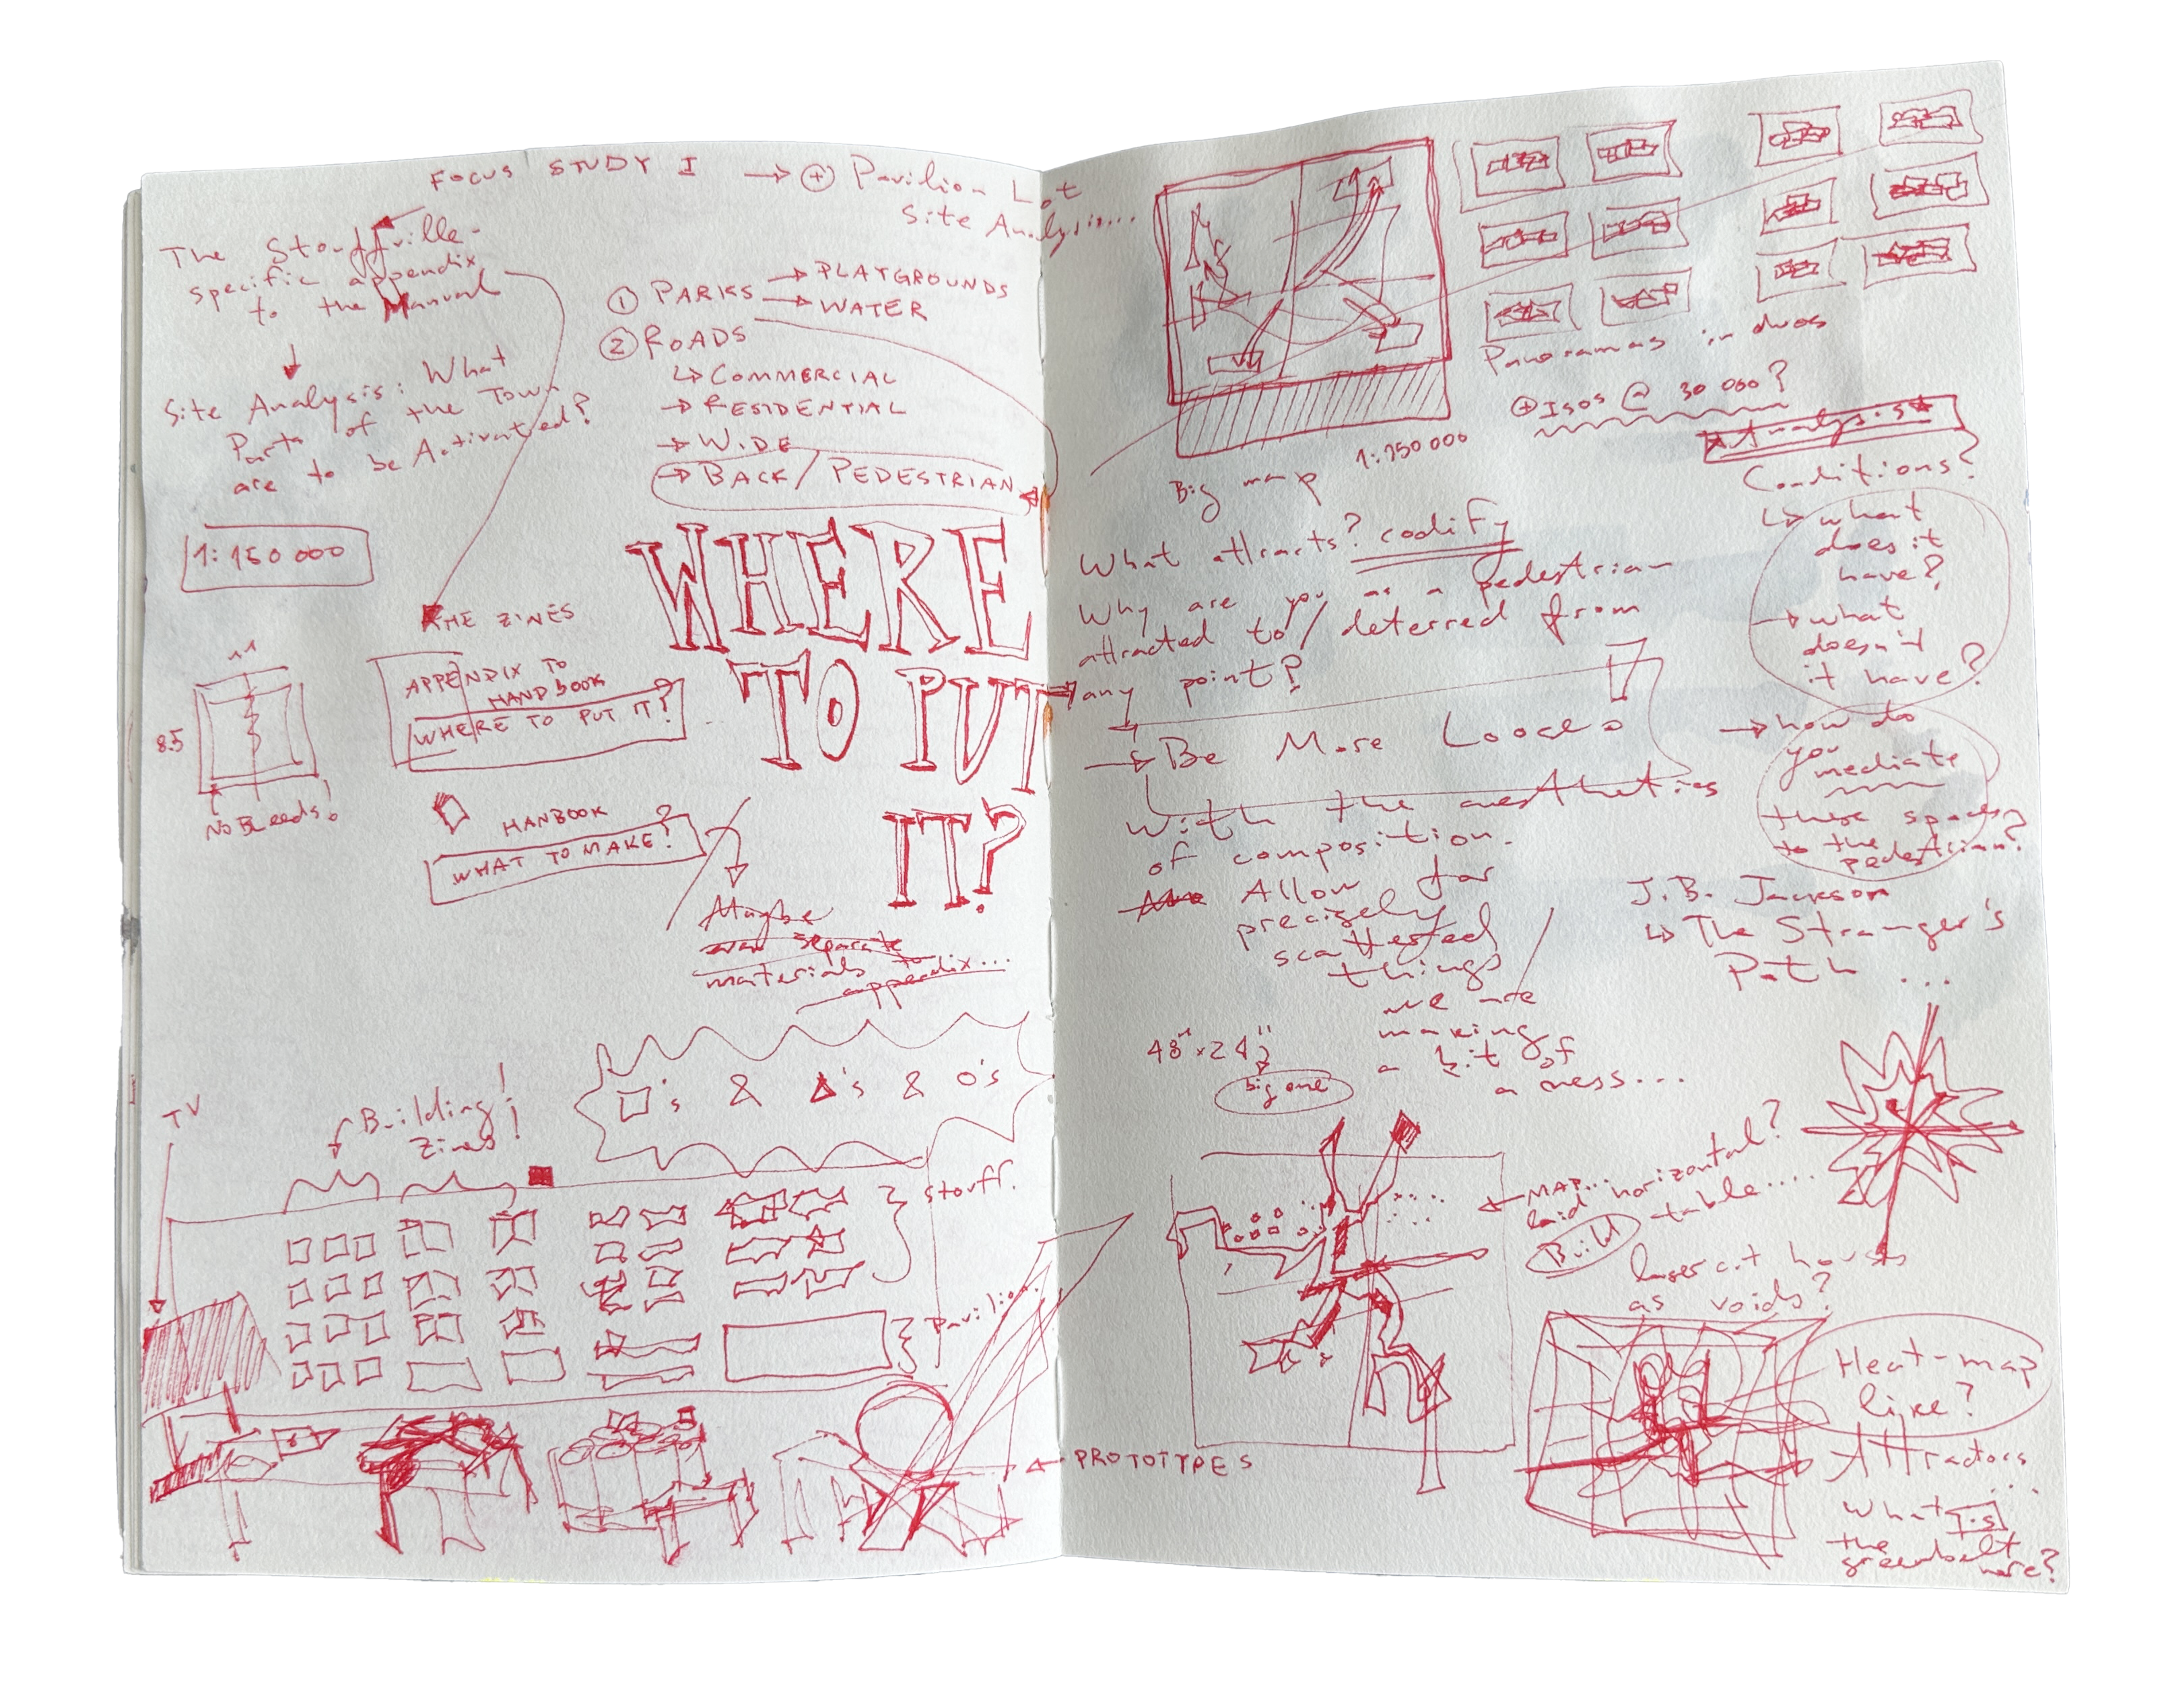 FOCUS STUDY I → + Pavilion Lot
Site Analysis...
The Stouffville-
specific appendix
to the Manual
Site Analysis: What
Parts of the Town
are to be Activated?
1 PARKS → PLAYGROUNDS
→ WATER
2 ROADS
↳ COMMERCIAL
→ RESIDENTIAL
→ WIDE
→ BACK/PEDESTRIAN
1:150 000
THE ZINES
APPENDIX TO
HANDBOOK
WHERE TO PUT IT?
11
8.5
NO BLEEDS!
HANBOOK
WHAT TO MAKE?
WHERE
TO PUT
IT?
Maybe
separate
materials to
appendix...
□'s & △'s & O's
TV
Building!
Zines!
Stouff.
Pavilion.
PROTOTYPES
Big map
1:150 000
Panoramas in duos
+ Isos @ 30 000?
Analysis
Conditions?
↳ what
does it
have?
→ what
doesn't
it have?
→ how do
you
mediate
these spaces
to the
pedestrian?
What attracts? codify
Why are you as a pedestrian
attracted to/deterred from
any point?
→ Be More Loose
with the aesthetics
of composition.
Allow for
precisely
scattered
things
we are
making
a bit of
a mess...
J.B. Jackson
↳ The Stranger's
Path ...
48"x24"
big one
MAP...
laid horizontal?
Build table....
lasercut houses
as voids?
Heat-map
like?
Attractors
...
What is
the
greenbelt
here?